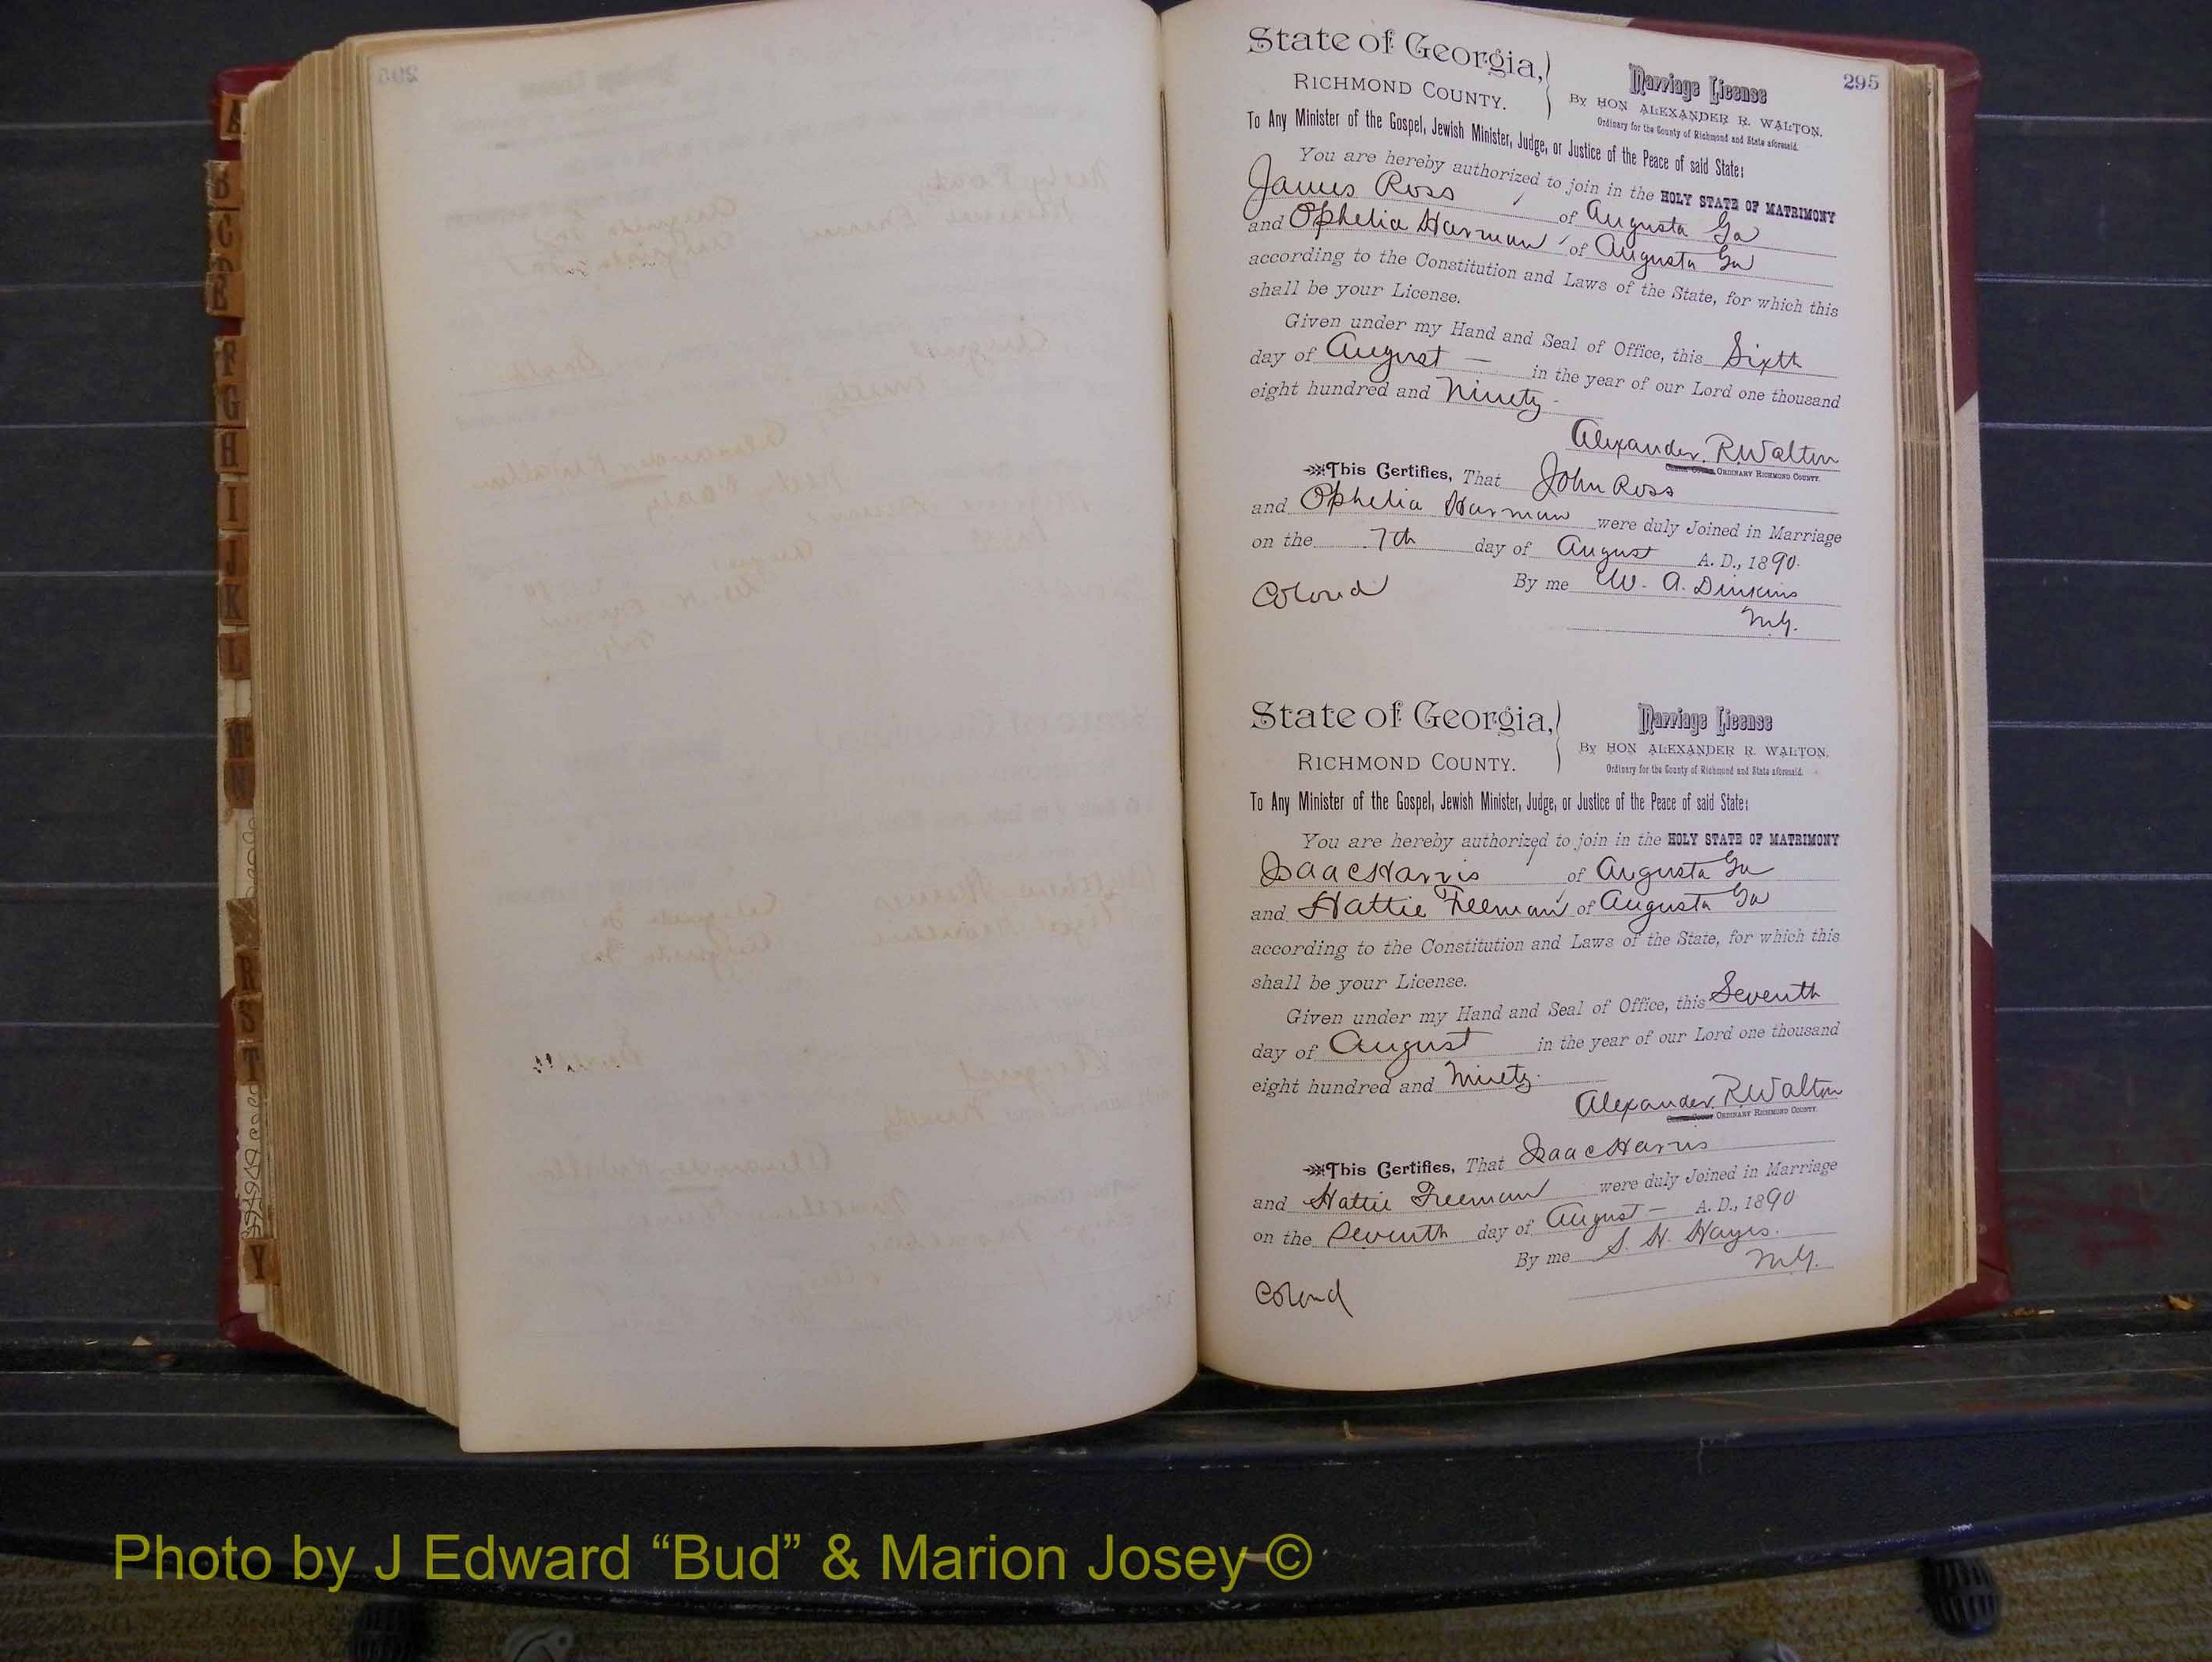 295
State of Georgia,
RICHMOND COUNTY.
Marriage License
By HON ALEXANDER R. WALTON.
Ordinary for the County of Richmond and State aforesaid.
To Any Minister of the Gospel, Jewish Minister, Judge, or Justice of the Peace of said State:
You are hereby authorized to join in the HOLY STATE OF MATRIMONY
James Ross of Augusta Ga
and Ophelia Harman of Augusta Ga
according to the Constitution and Laws of the State, for which this
shall be your License.
Given under my Hand and Seal of Office, this Sixth
day of August — in the year of our Lord one thousand
eight hundred and Ninety -
Alexander. R. Walton
ORDINARY RICHMOND COUNTY.
This Certifies, That John Ross
and Ophelia Harman were duly Joined in Marriage
on the 7th day of August A. D., 1890.
By me W. A. Dinkins
M.G.
Colored
State of Georgia,
RICHMOND COUNTY.
Marriage License
By HON ALEXANDER R. WALTON.
Ordinary for the County of Richmond and State aforesaid.
To Any Minister of the Gospel, Jewish Minister, Judge, or Justice of the Peace of said State:
You are hereby authorized to join in the HOLY STATE OF MATRIMONY
Isaac Harris of Augusta Ga
and Hattie Freeman of Augusta Ga
according to the Constitution and Laws of the State, for which this
shall be your License.
Given under my Hand and Seal of Office, this Seventh
day of August in the year of our Lord one thousand
eight hundred and Ninety.
Alexander. R. Walton
ORDINARY RICHMOND COUNTY.
This Certifies, That Isaac Harris
and Hattie Freeman were duly Joined in Marriage
on the Seventh day of August — A. D., 1890
By me S. H. Hayes.
M.G.
Colored
A
B
C
D
E
F
G
H
I
J
K
L
Mc
N
R
S
T
Y
Photo by J Edward “Bud” & Marion Josey ©